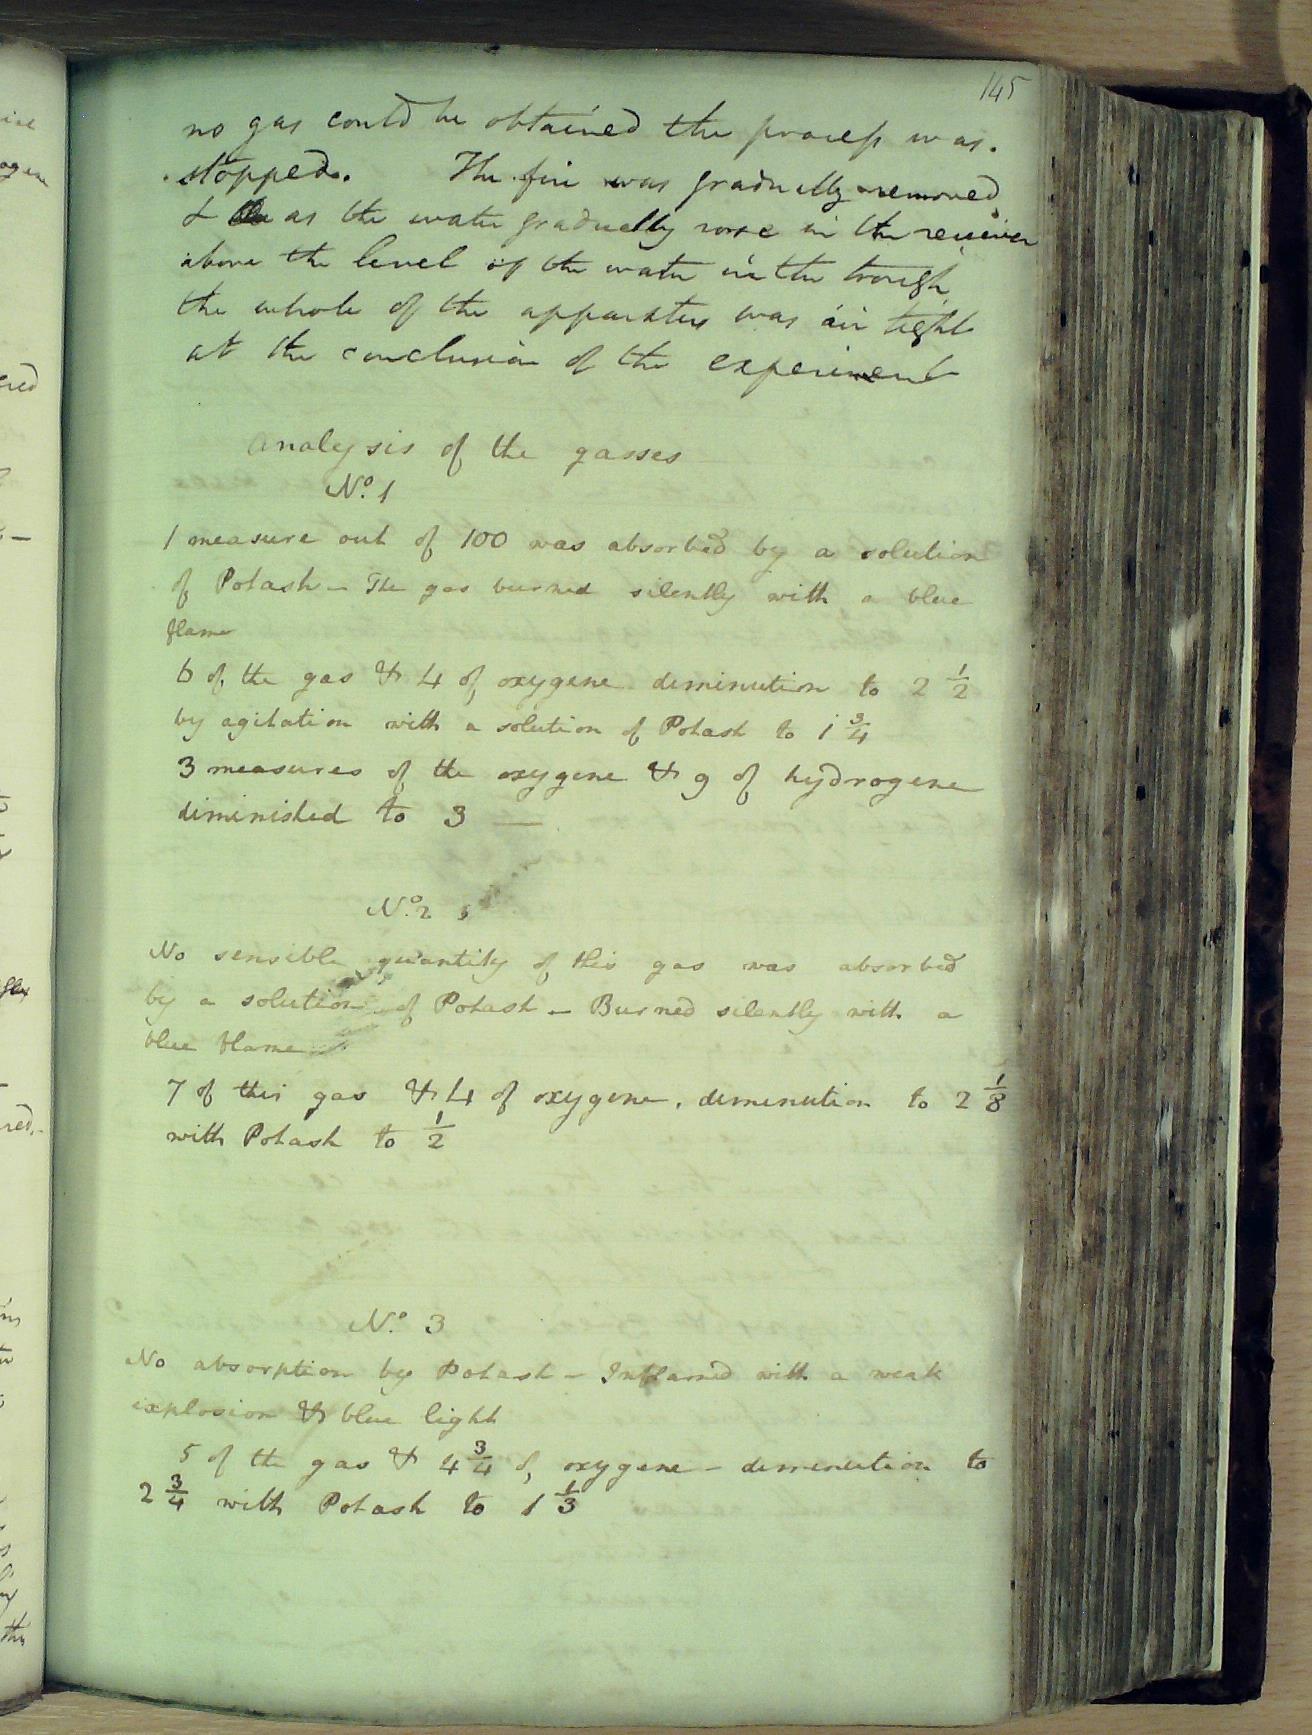 145
no gas could be obtained the process was.
stopped. The fire was gradually removed
& as the water gradually rose in the receiver
above the level of the water in the trough
the whole of the apparatus was air tight
at the conclusion of the experiment
Analysis of the gasses
No. 1
1 measure out of 100 was absorbed by a solution
of Potash - The gas burned silently with a blue
flame
6 of the gas & 4 of oxygene diminution to 2 1/2
by agitation with a solution of Potash to 1 3/4
3 measures of the oxygene & 9 of hydrogene
diminished to 3 —
No. 2
No sensible quantity of this gas was absorbed
by a solution of Potash - Burned silently with a
blue flame
7 of this gas & 4 of oxygene. diminution to 2 1/8
with Potash to 1/2
No. 3
No absorption by Potash - Inflamed with a weak
explosion & blue light
5 of the gas & 4 3/4 of oxygene - diminution to
2 3/4 with Potash to 1 1/3